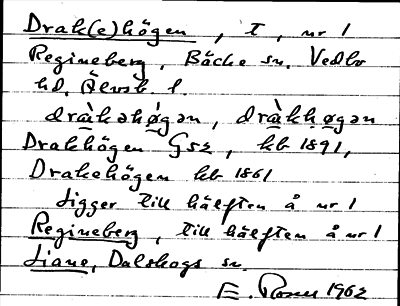 Drak(e)högen, T, nr 1
Regineberg, Bäcke sn. Vedbo
hd. Älvsb. l.
dràkəhø̀gən, dràkhø̀gən
Drakhögen Gsz, kb 1891,
Drakehögen kb 1861
Ligger till hälften å nr 1
Regineberg, till hälften å nr 1
Liane, Dalskogs sn.
E. 1962